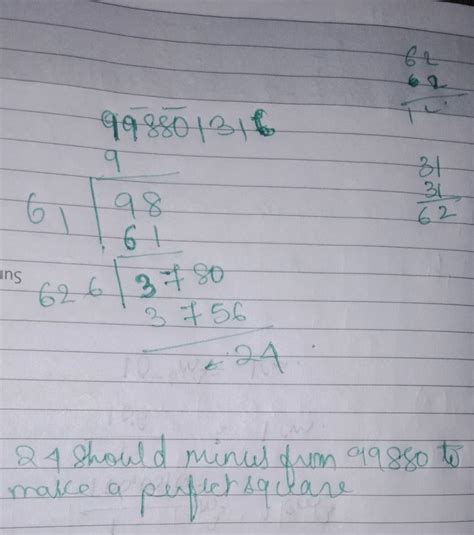 62
62
99880 | 316
9
31
31
62
61 | 98
61
ins
626 | 3780
3756
24
24 should minus from 99880 to
make a perfect square